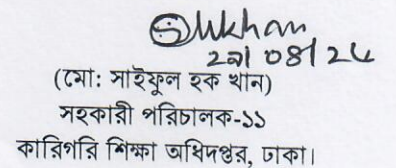 ২৯/০৪/২৪
(মো: সাইফুল হক খান)
সহকারী পরিচালক-১১
কারিগরি শিক্ষা অধিদপ্তর, ঢাকা।